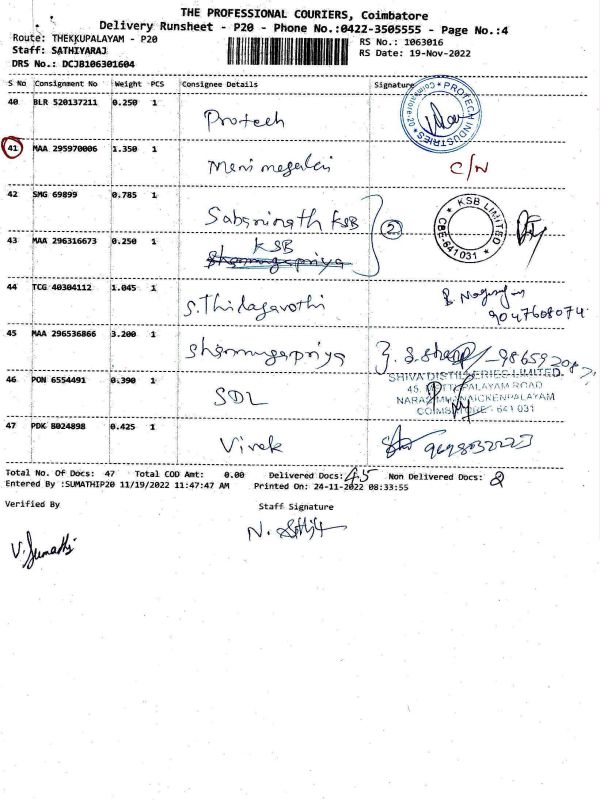 THE PROFESSIONAL COURIERS, Coimbatore
Delivery Runsheet - P20 - Phone No.:0422-3505555 - Page No.:4
Route: THEKKUPALAYAM - P20
RS No.: 1063016
Staff: SATHIYARAJ
RS Date: 19-Nov-2022
DRS No.: DCJB106301604
S No Consignment No Weight PCS Consignee Details Signature
40 BLR 520137211 0.250 1 Protech
PROTECH INDUSTRIES Coimbatore-20
41 MAA 295970006 1.350 1 Meni megalai C/N
42 SMG 69899 0.785 1 Sabarinath KSB
KSB LIMITED CBE-641031
2
43 MAA 296316673 0.250 1 KSB
Shanmugapriya
44 TCG 40304112 1.045 1 S.Thidagavathi
9047608074
45 MAA 296536866 3.200 1 Shanmugapriya
46 PON 6554491 0.390 1 SDL
SHIVA DISTILLERIES LIMITED.
PALAYAM ROAD
NARASIMHANAICKENPALAYAM
COIMBATORE - 641 031
47 PDK 8024898 0.425 1 Vivek
Total No. Of Docs: 47 Total COD Amt: 0.00 Delivered Docs: 45 Non Delivered Docs: 2
Entered By :SUMATHIP20 11/19/2022 11:47:47 AM Printed On: 24-11-2022 08:33:55
Verified By
Staff Signature
V. Sumathi